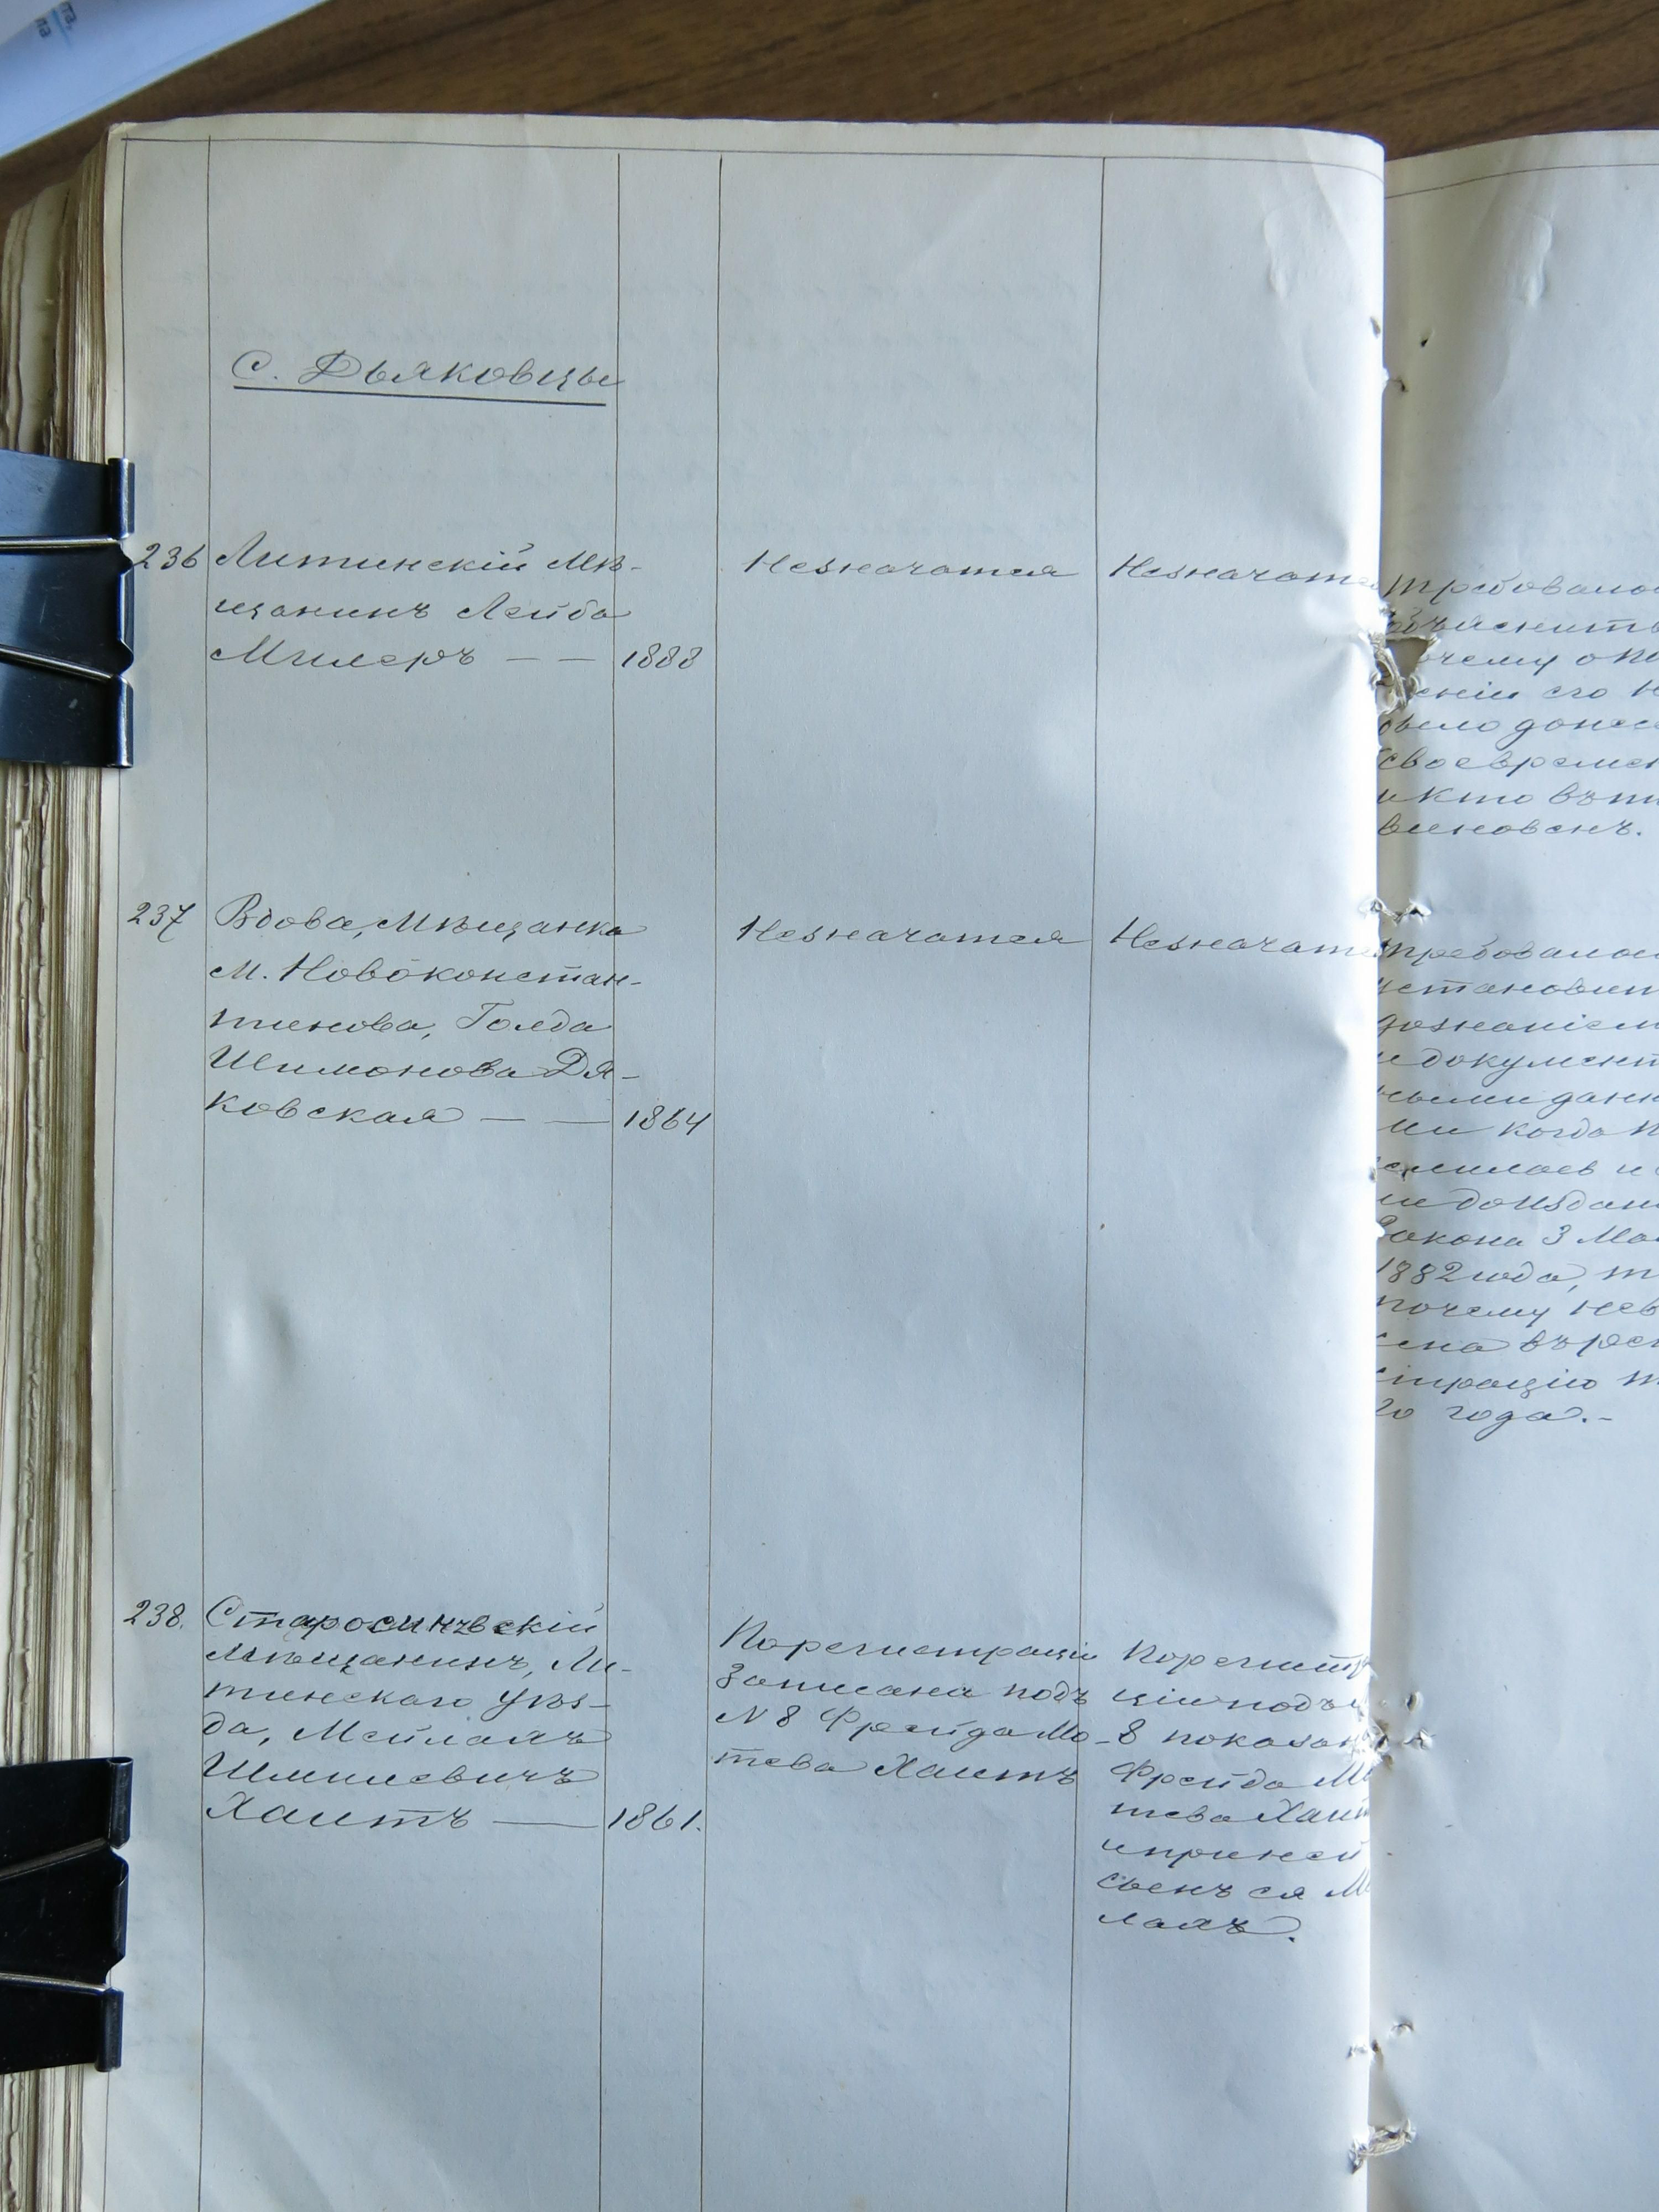 С. Дьяковцы
236 Литинскій Мѣ-
щанинъ Лейба
Милеръ — — 1888
Незначатся
Незначатс
Требовалос
объяснить
почему о по
сніи его н
было донес
своевремен
и кто въ т
виновенъ.
237 Вдова, Мѣщанка
М. Новоконстан-
тинова, Голда
Шимонова Дя-
ковская — — 1864
Незначатся
Незначат
Требовалос
установит
дознаніем
и документ
ными данн
ми когда п
селилась и
ли до издан
Закона 3 Мая
1882 года, т
почему нев
сена въ реги
страцію т
го года.-
238. Старосинявскій
Мѣщанинъ, Ли-
тинскаго уѣз-
да, Мейлахъ
Шмилевичъ
Хаитъ — 1861.
По регистраціи
записана подъ
N 8 Фрейда Мо-
тева Хаитъ
По регистр
ціи подъ N
8 показан
Фрейда М
тева Хаит
и при ней
сынъ ея М
лахъ.